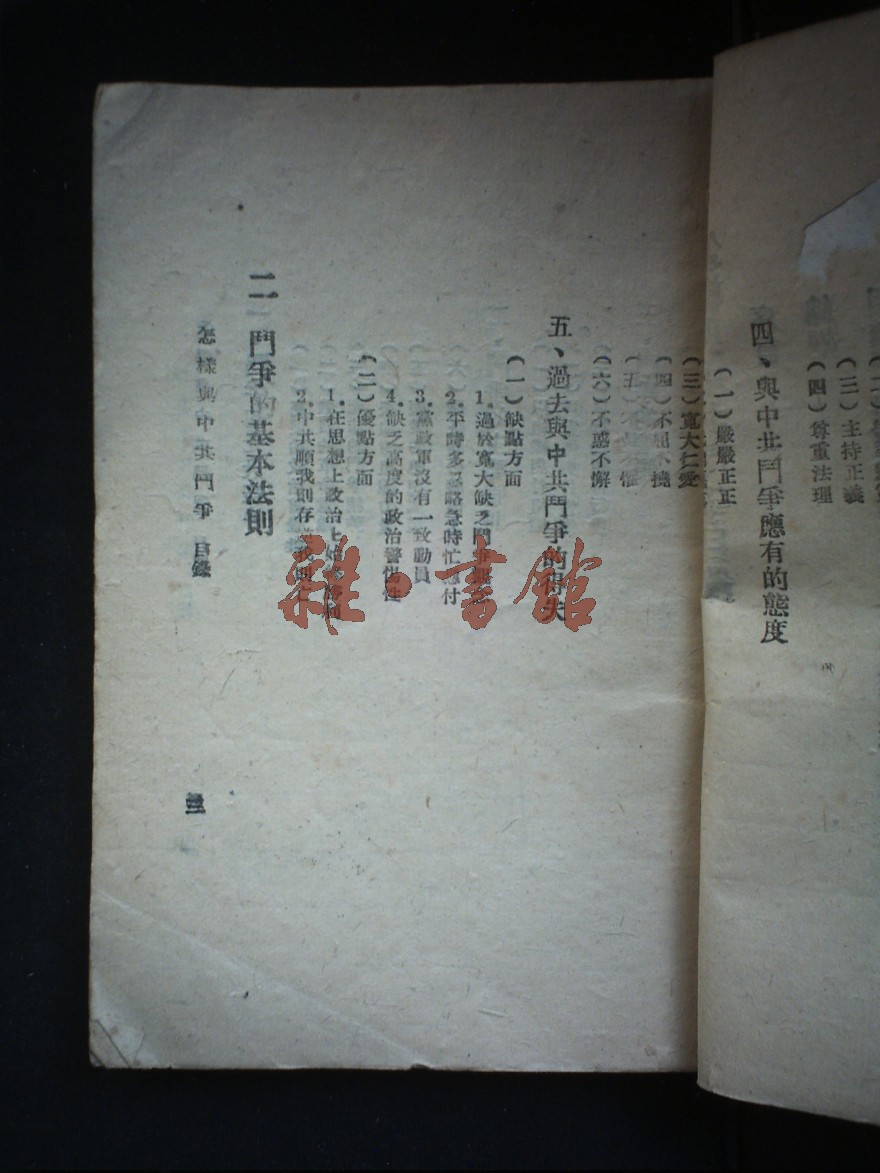 (三)主持正義
(四)尊重法理
四、與中共鬥爭應有的態度
(一)嚴嚴正正
(三)寬大仁愛
(四)不屈不撓
(五)不
(六)不惑不懈
五、過去與中共鬥爭的得失
(一)缺點方面
1.過於寬大缺乏鬥爭
2.平時多忽略急時忙應付
3.黨政軍沒有一致動員
4.缺乏高度的政治警惕性
(二)優點方面
1.在思想上政治上始終勝利
2.中共順我則存逆我則亡
二 鬥爭的基本法則
怎樣與中共鬥爭 目錄
三
雜·書館